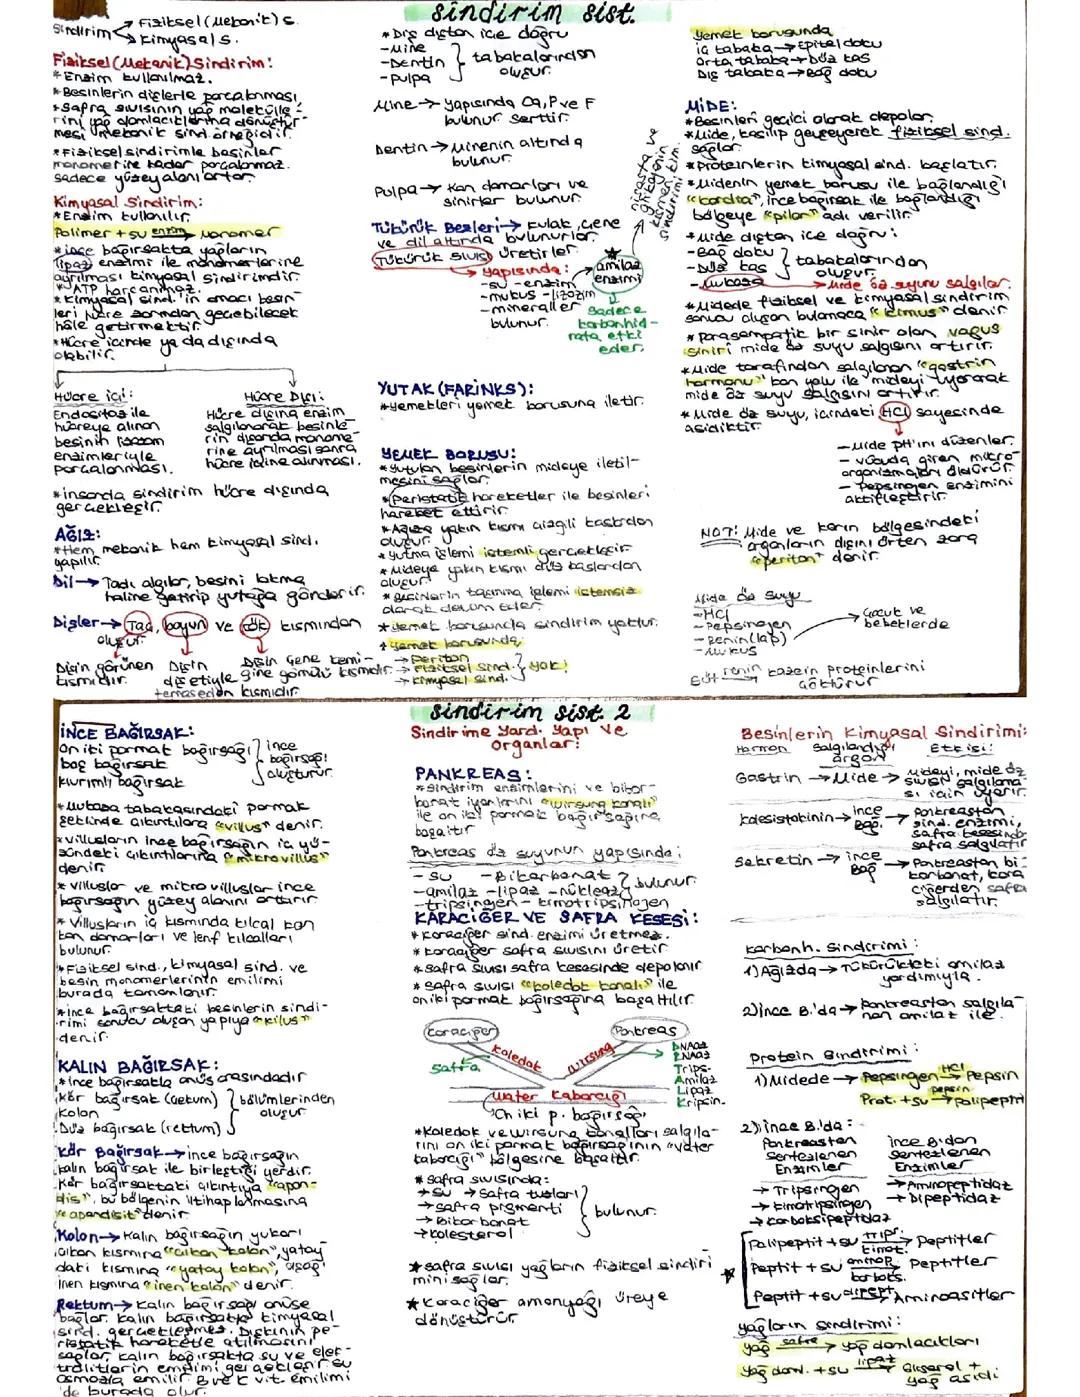 sindirim sist.
Sindirim → Fiziksel (Mekanik) s.
→ Kimyasal s.
Fiziksel (Mekanik) Sindirim:
* Enzim kullanılmaz.
* Besinlerin dişlerle parçalanması,
* Safra sıvısının yağ molekülle-
rini yağ damlacıklarına dönüştür-
mesi mekanik sind. örneğidir.
* Fiziksel sindirimle besinler
monomerine kadar parçalanmaz.
sadece yüzey alanı artar.
Kimyasal Sindirim:
* Enzim kullanılır
Polimer + su enzim→ Monomer
* ince bağırsakta yağların
lipaz enzimi ile monomerlerine
ayrılması kimyasal sindirimdir.
* ATP harcanmaz.
* Kimyasal sind.'in amacı besin-
leri hücre zarından geçebilecek
hâle getirmektir.
* Hücre içinde ya da dışında
olabilir.
Hücre içi:
Endositoz ile
hücreye alınan
besinin lizozom
enzimleriyle
parçalanması.
Hücre Dışı:
Hücre dışına enzim
salgılanarak besinle-
rin dışarıda monome-
rine ayrılması sonra
hücre içine alınması.
* insanda sindirim hücre dışında
gerçekleşir.
AĞIZ:
* Hem mekanik hem kimyasal sind.
yapılır.
Dil → Tadı algılar, besini lokma
haline getirip yutağa gönderir.
Dişler → Taç, boyun ve kök kısmından
oluşur.
Dişin görünen
kısmıdır.
Dişin
diş etiyle
temas eden kısmıdır
Dişin çene kemi-
ğine gömülü kısmıdır.
* Diş dıştan içe doğru
-Mine
-Dentin
-Pulpa
tabakalarından
oluşur.
Mine → Yapısında Ca, P ve F
bulunur serttir.
Dentin → Minenin altında
bulunur.
Pulpa → Kan damarları ve
sinirler bulunur
Tükürük Bezleri → Kulak, çene
ve dil altında bulunurlar.
Tükürük sıvısı üretirler.
→ yapısında:
-su -enzim
-mukus -lizozim
-mineraller
bulunur.
amilaz
enzimi
nişasta ve
glikojenin
kimyasal
sindirimi
sadece
karbonhid-
rata etki
eder.
YUTAK (FARİNKS):
* Yemekleri yemek borusuna iletir.
YEMEK BORUSU:
* Yutulan besinlerin mideye iletil-
mesini sağlar.
* Peristatik hareketler ile besinleri
hareket ettirir.
* Ağıza yakın kısmı çizgili kastrdan
oluşur.
* Yutma işlemi istemli gerçekleşir.
* Mideye yakın kısmı düz kaslardan
oluşur.
* Besinlerin taşınma işlemi istemsiz
olarak devam eder.
* Yemek borusunda sindirim yoktur.
* Yemek borusunda:
→ Periton
→ Fiziksel sind.
→ kimyasal sind.
yok!
Yemek borusunda
iç tabaka → Epitel doku
Orta tabaka → Düz kas
Dış tabaka → Bağ doku
MİDE:
* Besinleri geçici olarak depolar.
* Mide, kasılıp gevşeyerek fiziksel sind.
sağlar.
* Proteinlerin kimyasal sind. başlatır.
* Midenin yemek borusu ile bağlandığı
"kardia", ince bağırsak ile bağlandığı
bölgeye "pilor" adı verilir.
* Mide dıştan içe doğru:
-Bağ doku
-Düz kas
-Mukoza
tabakalarından
oluşur.
→ Mide öz suyunu salgılar.
* Midede fiziksel ve kimyasal sindirim
sonucu oluşan bulamaca "kimus" denir
* Parasempatik bir sinir olan vagus
siniri mide öz suyu salgısını artırır.
* Mide tarafından salgılanan "gastrin
hormonu" kan yolu ile mideyi uyararak
mide öz suyu salgısını artırır.
* Mide öz suyu, içindeki HCl sayesinde
asidiktir.
-Mide pH'ını düzenler.
- vücuda giren mikro-
organizmaları öldürür.
- Pepsinojen enzimini
aktifleştirir.
NOT: Mide ve karın bölgesindeki
organların dışını örten zara
"periton" denir.
Mide öz suyu
-HCl
-Pepsinojen
-Renin (lap) → Çocuk ve
bebeklerde
-Mukus
Süt renin→ kazein proteinlerini
çöktürür
sindirim sist. 2
İNCE BAĞIRSAK:
On iki parmak bağırsağı
boş bağırsak
kıvrımlı bağırsak
ince
bağırsağı
oluşturur.
* Mukoza tabakasındaki parmak
şeklinde çıkıntılara "villus" denir.
* villusların ince bağırsağın iç yü-
zündeki çıkıntılarına "mikrovillüs"
denir.
* villuslar ve mikrovilluslar ince
bağırsağın yüzey alanını arttırır.
* Villusların iç kısmında kılcal kan
kan damarları ve lenf kılcalları
bulunur.
* Fiziksel sind., kimyasal sind. ve
besin monomerlerinin emilimi
burada tamamlanır.
* ince bağırsaktaki besinlerin sindi-
rimi sonucu oluşan yapıya "kilus"
denir.
KALIN BAĞIRSAK:
* ince bağırsakla anüs arasındadır
kör bağırsak (çekum)
kolon
Düz bağırsak (rektum)
bölümlerinden
oluşur
kör Bağırsak → ince bağırsağın
kalın bağırsak ile birleştiği yerdir.
Kör bağırsaktaki çıkıntıya "apan-
dis", bu bölgenin iltihaplanmasına
"apandisit" denir.
Kolon → Kalın bağırsağın yukarı
çıkan kısmına "çıkan kolon", yatay
daki kısmına "yatay kolon", aşağı
inen kısmına "inen kolon" denir.
Rektum → Kalın bağırsağı anüse
bağlar. Kalın bağırsakta kimyasal
sind. gerçekleşmez. Dışkının pe-
ristatik hareketle atılmasını
sağlar, kalın bağırsakta su ve elek-
trolitlerin emilimi gerçekleşir su
osmozla emilir B ve K vit. emilimi
de burada olur.
Sindirime Yard. Yapı ve
Organlar:
PANKREAS:
* Sindirim enzimlerini ve bikar-
bonat iyonlarını "wirsung kanalı"
ile on iki parmak bağırsağına
boşaltır
Pankreas öz suyunun yapısında:
- su -Bikarbonat
-amilaz -lipaz -nükleaz
-tripsinojen - kimotripsinojen
bulunur.
KARACİĞER VE SAFRA KESESİ:
* karaciğer sind. enzimi üretmez.
* karaciğer safra sıvısını üretir
* safra sıvısı safra kesesinde depolanır
* safra sıvısı "koledok kanalı" ile
on iki parmak bağırsağına boşaltılır.
Karaciğer
Pankreas
Koledok
Wirsung
safra
DNAaz
RNAaz
Trips.
Amilaz
Lipaz
Kripsin.
Water Kabarcığı
On iki p. bağırsağı
* Koledok ve wirsung kanalları salgıla-
rını on iki parmak bağırsağının "vater
kabarcığı" bölgesine boşaltır.
* safra sıvısında:
→ su → safra tuzları
→ safra pigmenti
→ Bikarbonat
→ kolesterol
bulunur.
* safra sıvısı yağların fiziksel sindiri
mini sağlar.
* Karaciğer amonyağı üreye
dönüştürür.
Besinlerin Kimyasal Sindirimi:
Hormon salgılandığı organ Etkisi:
Gastrin → Mide → Mideyi, mide öz
suyu salgılama-
sı için uyarır.
kolesistokinin → ince
Bağ. → Pankreastan
sind. enzimi,
safra kesesinden
safra salgılatır
Sekretin → ince
Bağ → Pankreastan bi-
karbonat, kara
ciğerden safra
salgılatır.
Karbonh. Sindirimi:
1) Ağızda → Tükürükteki amilaz
yardımıyla.
2) İnce B.'da → Pankreastan salgıla-
nan amilaz ile.
Protein Sindirimi:
1) Midede → Pepsinojen HCl→ Pepsin
Prot. + su pepsin→ polipeptit
2) ince B.'da:
Pankreastan
Sentezlenen
Enzimler
→ Tripsinojen
→ Kimotripsinojen
→ Karboksipeptidaz
ince B.dan
sentezlenen
Enzimler
→ Aminopeptidaz
→ Dipeptidaz
Polipeptit + su trips. kimot.→ Peptitler
Peptit + su aminop. karboks.→ Peptitler
Peptit + su dipept.→ Aminoasitler
yağların sindirimi:
yağ safra→ yağ damlacıkları
Yağ daml. + su lipaz→ Gliserol +
yağ asidi